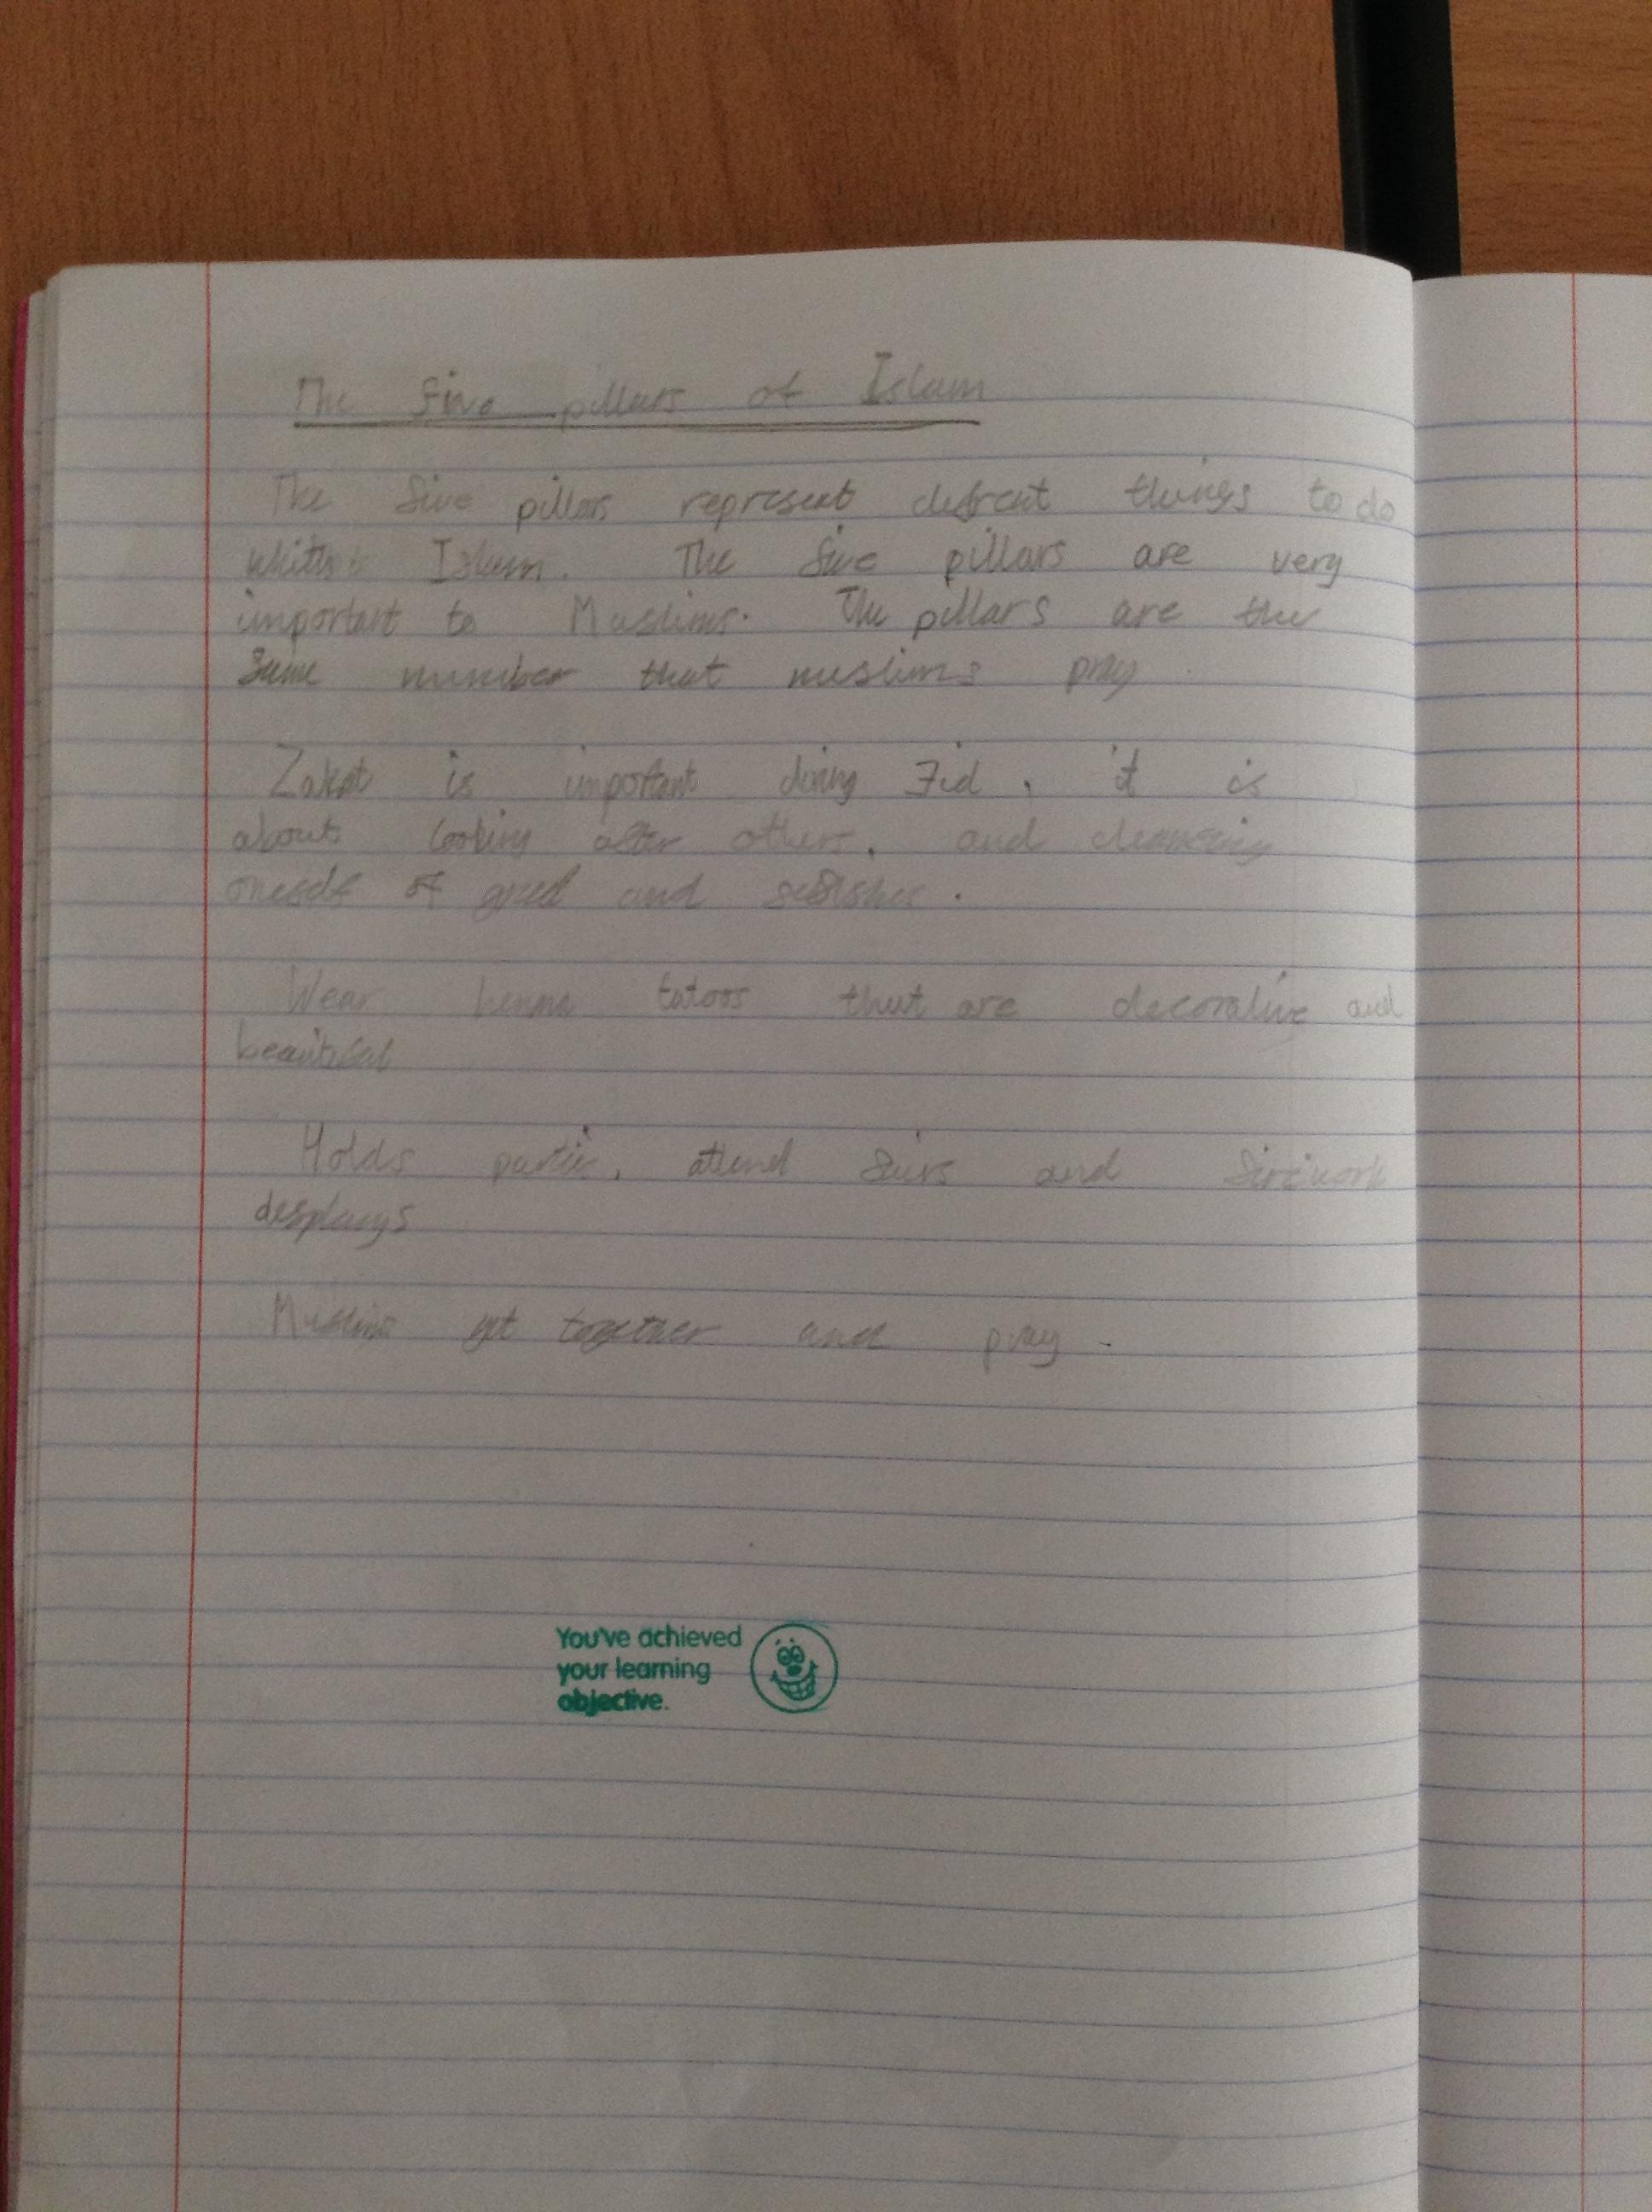 The five pillars of Islam
The five pillars represent defrent things to do
Islam. The five pillars are very
important to Muslims. The pillars are the
same number that muslims pray
Zakat is important during Eid, it is
about looking after others. and cleansing
oneself of greed and
Wear henna tatoos that are decorative and
beautiful
Holds parties, attend fairs and firework
desplays
Muslims get together and pray.
You've achieved
your learning
objective.